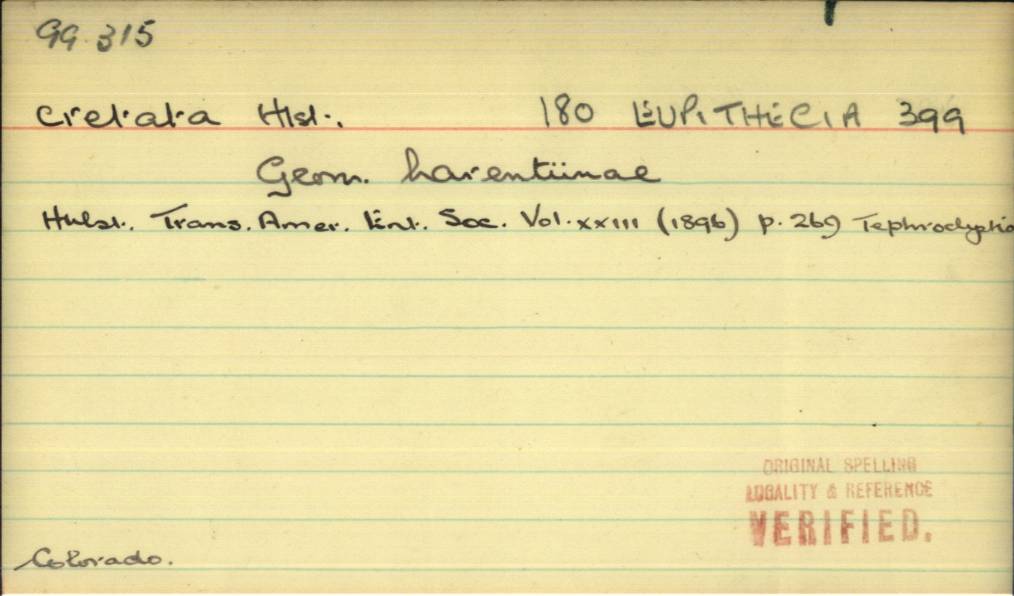 99.315
cretata Hlst. 180 EUPITHECIA 399
Geom. Larentiinae
Hulst. Trans. Amer. Ent. Soc. Vol. XXIII (1896) p. 269 Tephroclystia
ORIGINAL SPELLING
LOCALITY & REFERENCE
VERIFIED.
Colorado.